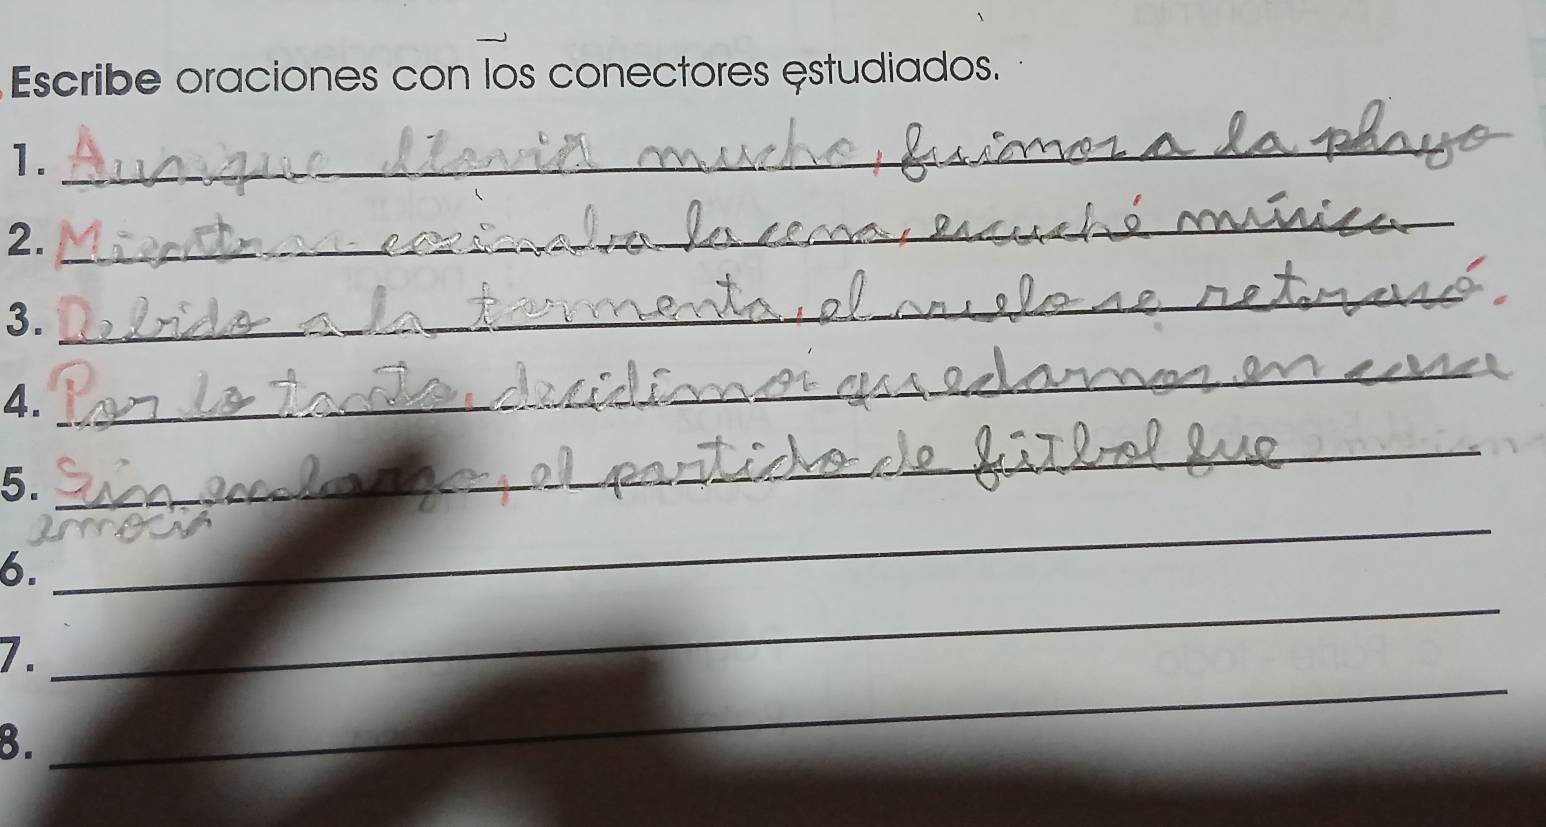 Escribe oraciones con los conectores estudiados.
1. Aunque llovía mucho, fuimos a la playa
2. Mientras cocinaba la cena, escuché música
3. Debido a la tormenta, el vuelo se retrasó.
4. Por lo tanto, decidimos quedarnos en casa
5. Sin embargo, el partido de fútbol fue
emocin
6.
7.
8.